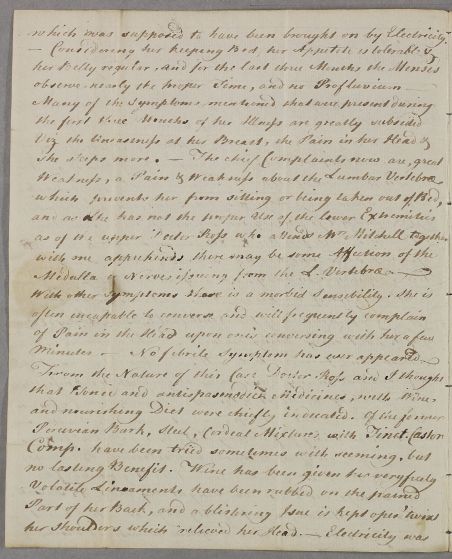 which was supposed to have been brought on by Electricity.
— Considering her keeping Bed, her Appetite is tolerable &
her Belly regular, and for the last three Months the Menses
observe nearly the proper Time, and no Profluvium —
Many of the Symptoms mentioned that were present during
the first three Months of her Illness are greatly subsided
Viz the uneasiness at her Breast, the Pain in her Head &
she sleeps more. — The chief Complaints now are, great
Weakness, a Pain & Weakness about the Lumbar Vertebræ
which prevents her from sitting or being taken out of Bed,
and as she has not the proper Use of the lower Extremities
as of the upper Doctor Ross who attends Mrs Mitchell together
with me apprehends there may be some Affection of the
Medulla or Nerves issuing from the L. Vertebræ —
With other Symptoms there is a morbid Sensibility. She is
often incapable to converse and will frequently complain
of Pain in the Head upon one's conversing with her a few
Minutes — No febrile Symptom has ever appeared —
From the Nature of this Case Doctor Ross and I thought
that Tonic and antispasmodick Medicines, with Wine,
and nourishing Diet were chiefly indicated. Of the former
Peruvian Bark, Steel, Cordial Mixtures with Tinct. Castor
Comp. have been tried sometimes with seeming, but
no lasting Benefit. Wine has been given her very freely
Volatile Linaments have been rubbed on the pained
Part of her Back, and a blistering Issue is kept open 'twixt
her Shoulders which relieved her Head. — Electricity was